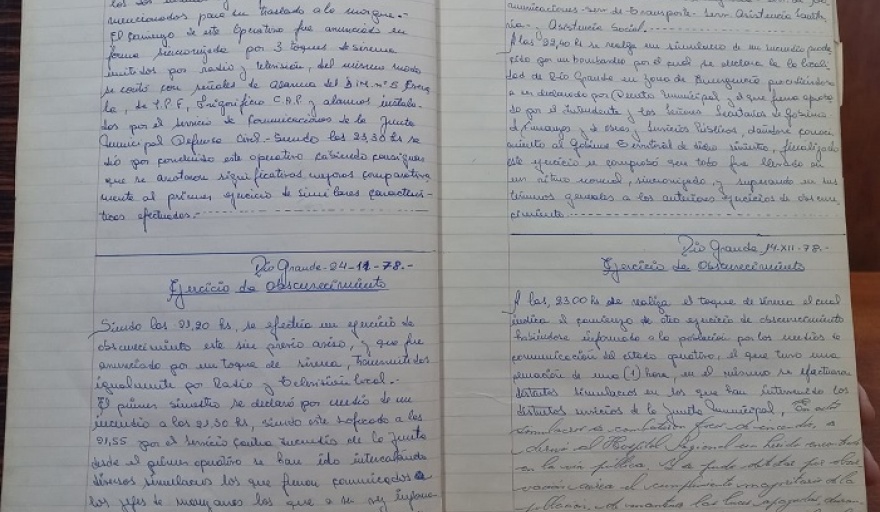 mencionados, para su traslado a la morgue.-
El comienzo de este Operativo fue anunciado en
forma sincronizada por 3 toques de sirena
emitidos por radio y television, del mismo modo
se contó con señales de alarma del B.I.M. Nº 5
la, de Y.P.F, Frigorifico C.A.P. y alarmas instala-
das por el servicio de Comunicaciones de la Junta
Municipal Defensa Civil.- Siendo las 23,30 hs se
dio por concluido este operativo cabiendo consignar
que se anotaron significativas mejoras comparativa
mente al primer ejercicio de similares caracterís-
ticas efectuados.-
Rio Grande - 24-11-78.-
Ejercicio de Obscurecimiento
Siendo las 21,20 hs, se efectúa un ejercicio de
obscurecimiento este sin previo aviso, y que fue
anunciado por un toque de sirena, transmitidos
igualmente por Radio y Television local.-
El primer siniestro se declaró por medio de un
incendio a las 21,30 hs, siendo este sofocado a las
21,55 por el Servicio Contra Incendio de la Junta
desde el primer operativo se han ido intercalando
diversos simulacros los que fueron comunicados a
los jefes de manzanas los que a su vez informa
municaciones - serv. de transporte - Serv. Asistencia Sanita
ria - Asistencia Social.
A las 22,40 hs se realiza un simulacro de un incendio produ
cido por un bombardeo por el cual se declara a la locali
dad de Rio Grande en zona de Emergencia procediendose
a ser declarado por Decreto Municipal y el que fuera apoya
do por el intendente y los Señores Secretarios de Gobierno
de Finanzas y de obras y Servicios Públicos, dandose conoci
miento al Gobierno Territorial de dicho siniestro, finalizado
este ejercicio se comprobó que todo fue llevado en
un ritmo normal, sincronizado, y superando en sus
terminos generales a los anteriores ejercicios de obscure
cimiento.
Rio Grande 14-XII-78.-
Ejercicio de Obscurecimiento
A las, 23,00 hs se realiza el toque de sirena el cual
indica el comienzo de otro ejercicio de obscurecimiento
habiendose informado a la poblacion por los medios de
comunicación del citado operativo, el que tuvo una
duración de una (1) hora, en el mismo se efectuaron
distintos simulacros en los que han intervenido los
distintos servicios de la Junta Municipal, En este
simulacro se combatieron focos de incendio, a
derivó al Hospital Regional un herido encontrado
en la vía publica. Se pudo detectar por obser
vación aérea el cumplimiento mayoritario de la
población de mantener las luces apagadas duran